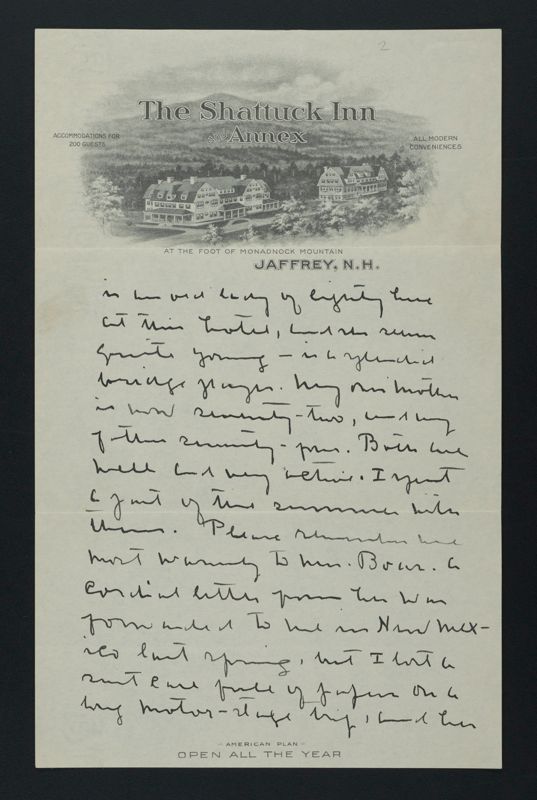 2
The Shattuck Inn
AND Annex
ACCOMMODATIONS FOR
200 GUESTS
ALL MODERN
CONVENIENCES
AT THE FOOT OF MONADNOCK MOUNTAIN
JAFFREY, N.H.
is an old lady of eighty here
at this hotel, and she seems
quite young — is a splendid
bridge player. My own mother
is now seventy-two, and my
father seventy-four. Both are
well and very active. I spent
a part of the summer with
them. Please remember me
most warmly to Mrs. Boas. A
cordial letter from her was
forwarded to me in New Mex-
ico last spring, but I lost a
suit case full of papers on a
long motor-stage trip, and her
— AMERICAN PLAN —
OPEN ALL THE YEAR